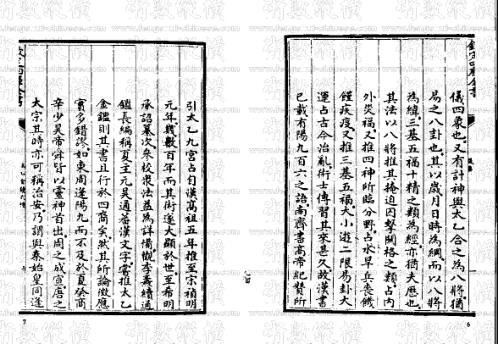 欽定四庫全書
儀四象也又有計神與太乙合之為八將猶
易之八卦也其以歲月日時為綱而以八將
為緯三基五福十精之類為經亦猶夫歷也
其法以八將推其掩迫囚擊關格之類占内
外災福又推四神所臨分野占水旱兵喪饑
饉疾疫又推三基五福大小遊二限易卦大
運占古今治亂術士傳習其來甚久故漢書
已載有陽九百六之語南齊書高帝紀贊所
引太乙九宮占自漢高祖五年推至宋禎明
元年幾數百年而其術遂大顯於世至希明
承詔纂次參校衆法益為詳備惟李燾續通
鑑長編稱夏主元昊通蕃漢文字嘗推太乙
鑑其書且行於四裔矣然其所論徵應
實多錯謬如東周遂陽九而不及於夏癸商
辛少昊帝舜皆以靈神首出周之成宣唐之
太宗其時亦可稱治安乃謂與秦始皇同遂
6
7